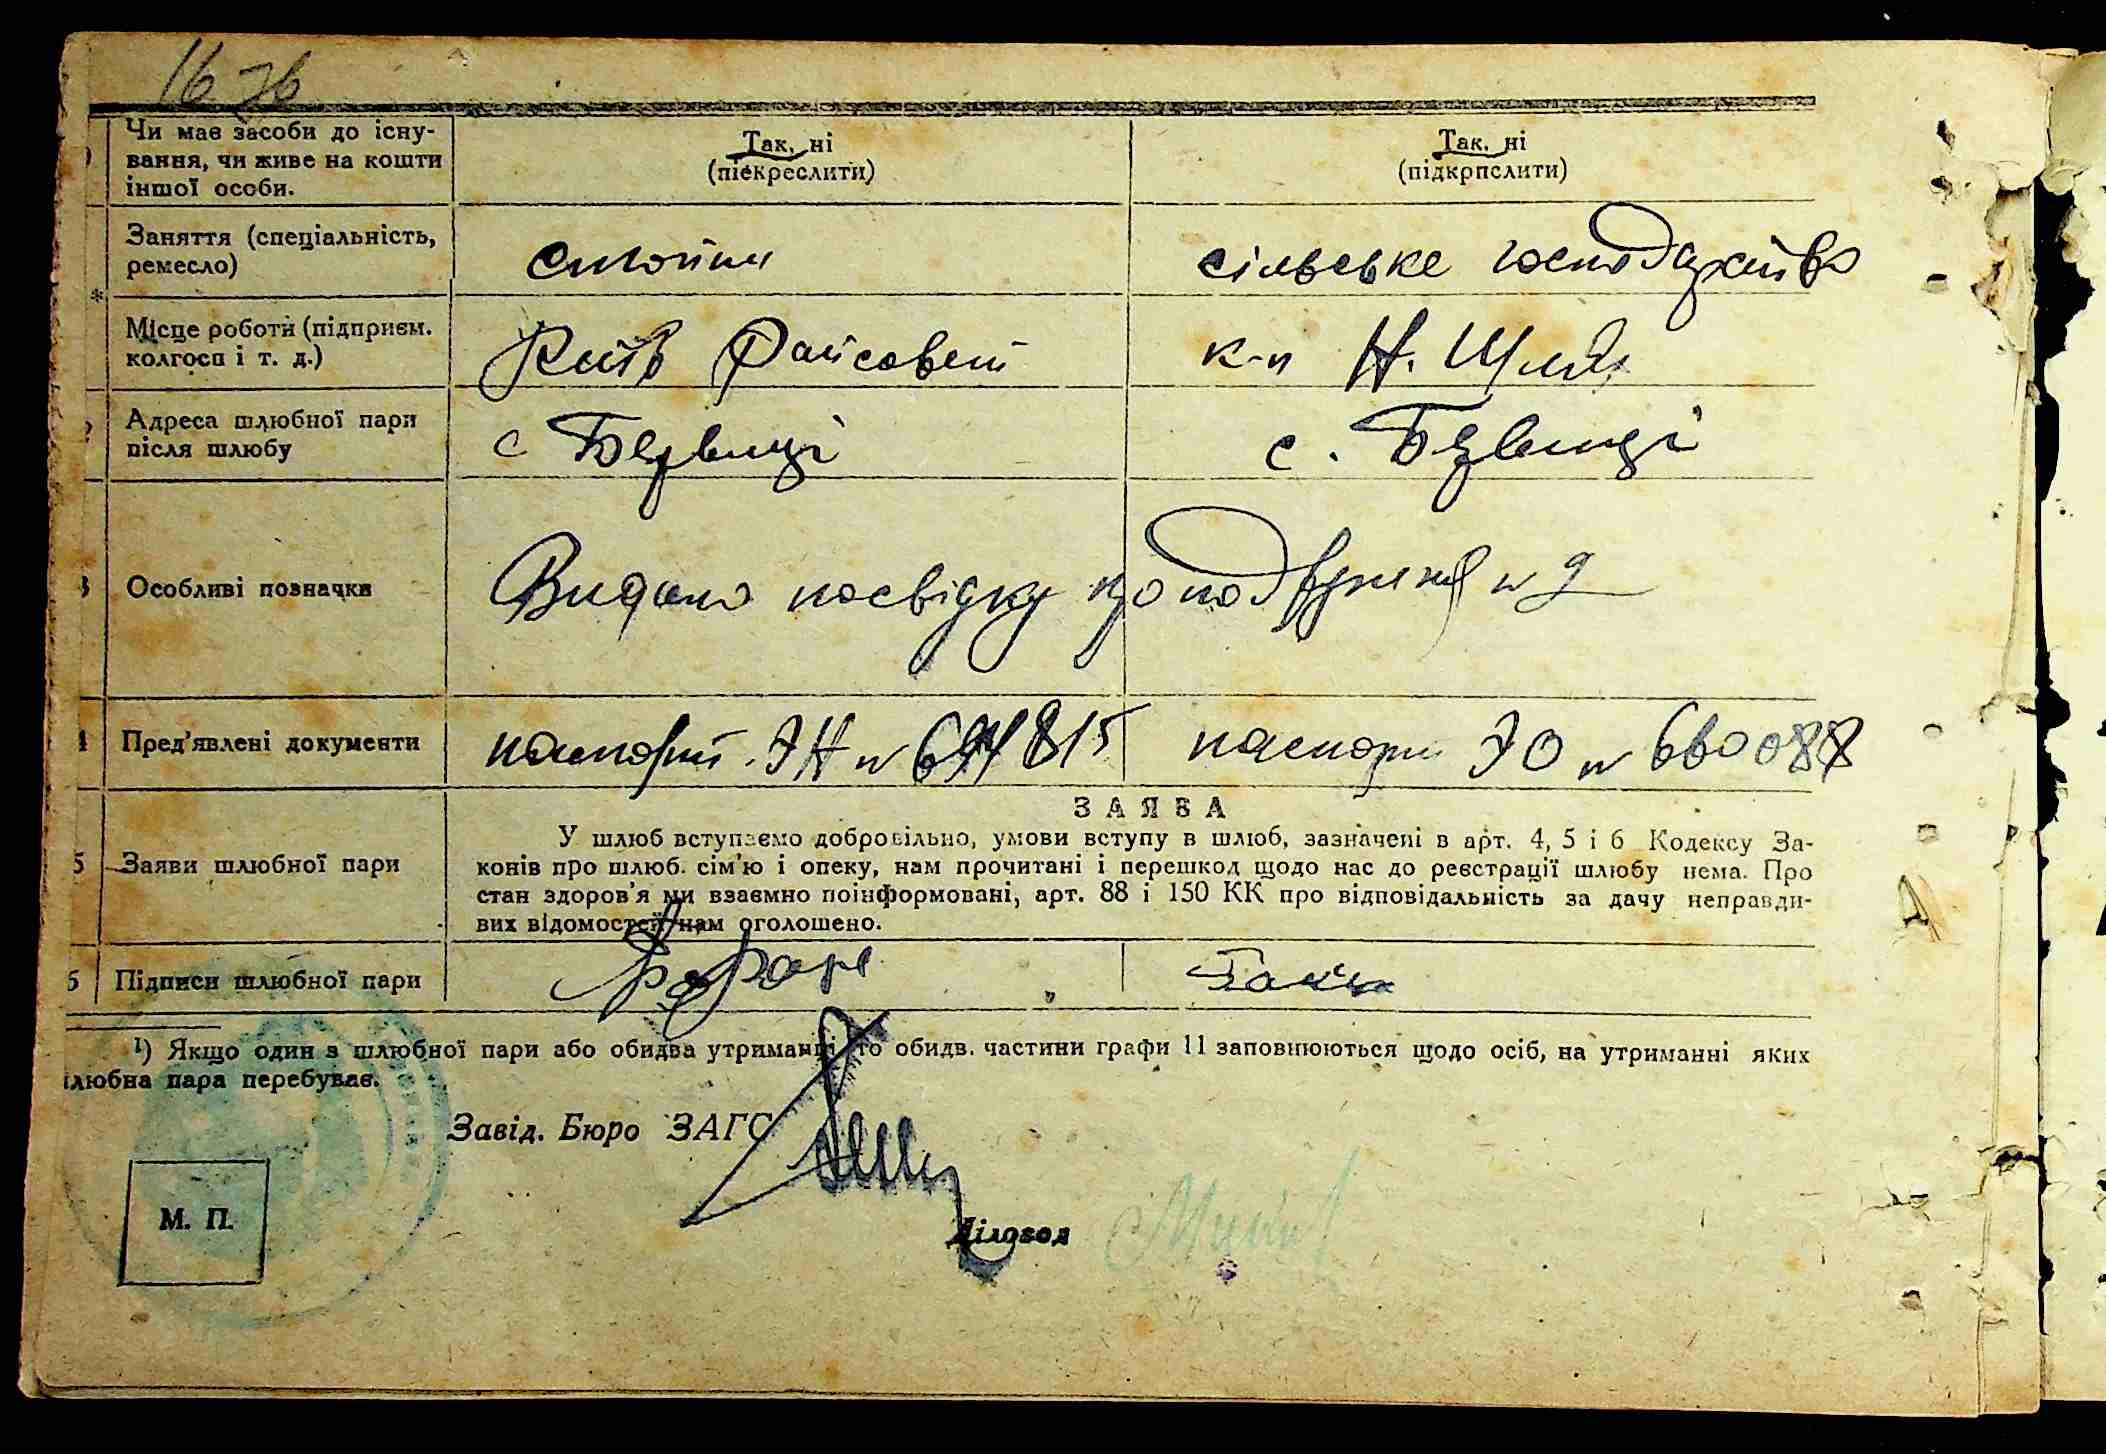 16 зв
Чи має засоби до існу-
вання, чи живе на кошти
іншої особи.
Так, ні
(піекреслити)
Так. ні
(підкрпслити)
Заняття (спеціальність,
ремесло)
сільське господарство
*
Місце роботи (підприєм.
колгосп і т. д.)
Київ Райсовет
к-п Н. Шлях
Адреса шлюбної пари
після шлюбу
с Бервиці
с. Бервиці
3 Особливі позначки
Видано посвідку про одруження № 2
4 Пред'явлені документи
паспорт. ЭН № 694815
паспорт ЭО № 660088
ЗАЯВА
У шлюб вступаємо добровільно, умови вступу в шлюб, зазначені в арт. 4, 5 і 6 Кодексу За-
5 Заяви шлюбної пари
конів про шлюб. сім'ю і опеку, нам прочитані і перешкод щодо нас до реєстрації шлюбу нема. Про
стан здоров'я ми взаємно поінформовані, арт. 88 і 150 КК про відповідальність за дачу неправди-
вих відомостей нам оголошено.
6 Підписи шлюбної пари
¹) Якщо один з шлюбної пари або обидва утриманці то обидв. частини графи 11 заповнюються щодо осіб, на утриманні яких
шлюбна пара перебуває.
Завід. Бюро ЗАГС
М. П.
Діловод